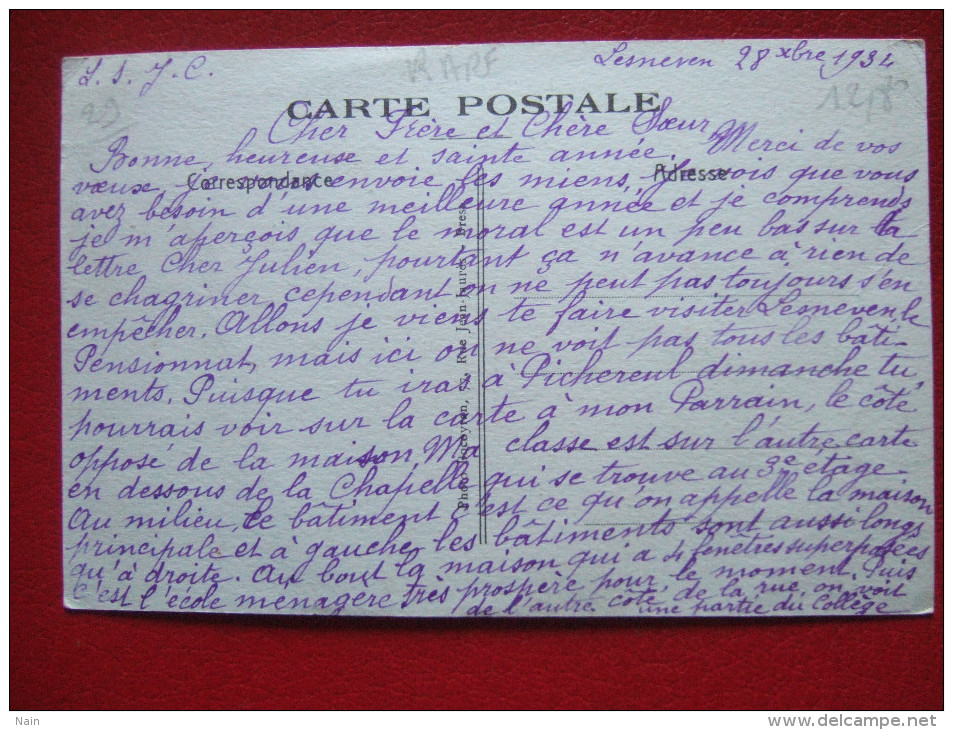 L. S. J. C.
RARE
Lesneven 28 xbre 1934
CARTE POSTALE
Cher Frère et Chère Sœur
Bonne, heureuse et sainte année. Merci de vos
vœux, je vous envoie les miens, je vois que vous
Correspondance
Adresse
avez besoin d'une meilleure année et je comprends
je m'aperçois que le moral est un peu bas sur ta
lettre Cher Julien, pourtant ça n'avance à rien de
se chagriner, cependant on ne peut pas toujours s'en
empêcher. Allons je viens te faire visiter Lesneven, le
Pensionnat, mais ici on ne voit pas tous les bâti-
ments. Puisque tu iras à Pichereul dimanche tu
pourrais voir sur la carte à mon Parrain, le côté
opposé de la maison Ma classe est sur l'autre carte
en dessous de la Chapelle qui se trouve au 3e étage
Au milieu, le bâtiment c'est ce qu'on appelle la maison
principale et à gauche les bâtiments sont aussi longs
qu'à droite. Au bout la maison qui a 4 fenêtres superposées
C'est l'école ménagère très prospère pour le moment. Puis
de l'autre côté de la rue, on voit
une partie du Collège
Rue Jean-Jaurès - Brest
Nain
www.delcampe.net